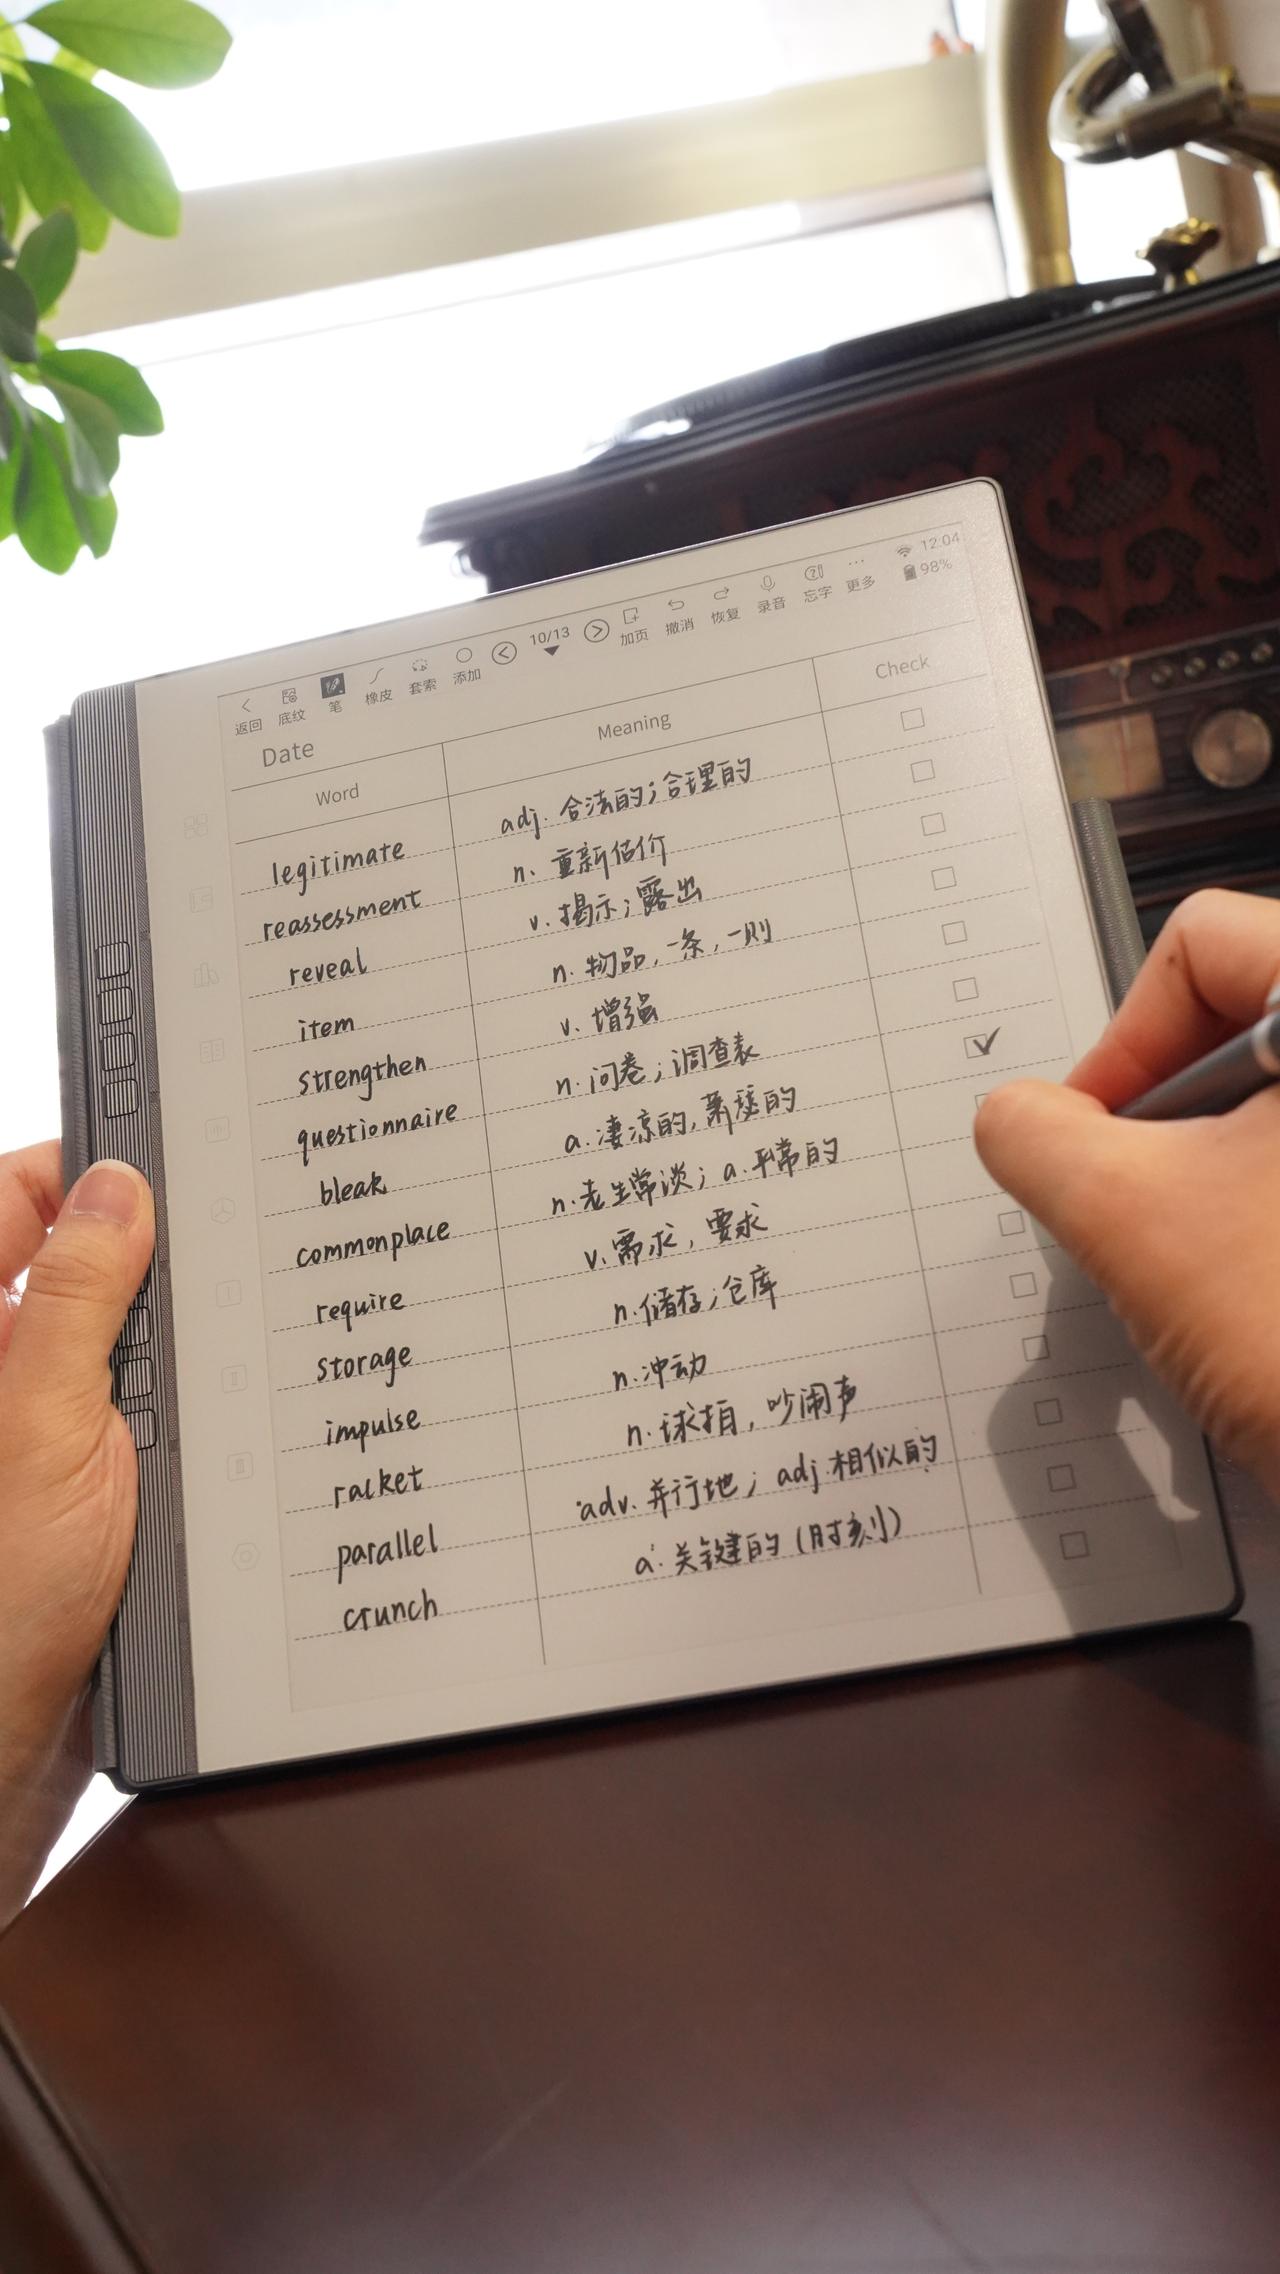 12:04
98%
返回 底纹 笔 橡皮 套索 添加 10/13 加页 撤消 恢复 录音 忘字 更多
Date
Word Meaning Check
legitimate adj. 合法的;合理的
reassessment n、重新估价
reveal v. 揭示;露出
item n. 物品,一条,一则
strengthen v. 增强
questionnaire n. 问卷;调查表
bleak a. 凄凉的,萧瑟的
commonplace n. 老生常谈; a. 平常的
require v. 需求,要求
storage n. 储存;仓库
impulse n. 冲动
racket n. 球拍,吵闹声
parallel adv. 并行地; adj. 相似的
crunch a. 关键的(时刻)